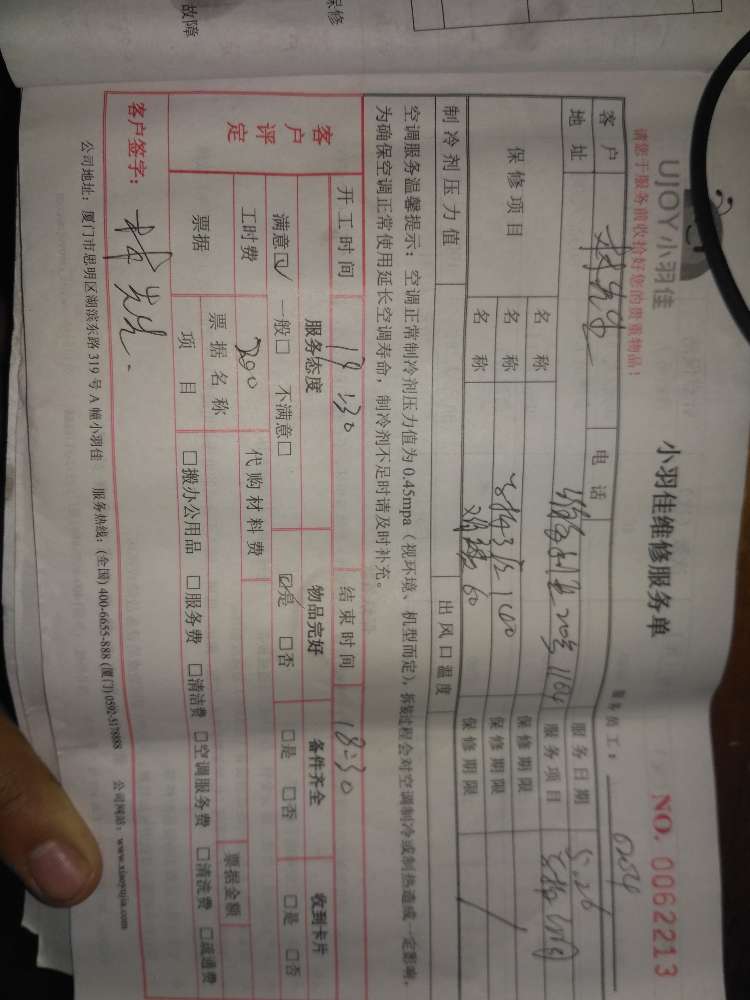 故障
保修
UJOY小羽佳
请您于服务前收拾好您的贵重物品！
小羽佳维修服务单
NO. 0062213
服务员工：
客户
电话
服务日期 5.26
地址
1104
服务项目
保修项目
名称
保修期限
名称
100
保修期限
名称
60
保修期限
制冷剂压力值
出风口温度
空调服务温馨提示：空调正常制冷剂压力值为0.45mpa（视环境、机型而定），拆装过程会对空调制冷或制热造成一定影响，
为确保空调正常使用延长空调寿命，制冷剂不足时请及时补充。
客户评定
开工时间 17:30 结束时间 18:30
服务态度 物品完好 备件齐全 收到卡片
满意☑ 一般□ 不满意□ ☑是 □否 □是 □否 □是 □否
工时费 200 代购材料费
票据 票据名称 票据金额
项目 □搬办公用品 □服务费 □清洁费 □空调服务费 □清洗费 □疏通费
客户签字： 林先生.
公司地址：厦门市思明区湖滨东路319号A幢小羽佳 服务热线：(全国) 400-6655-888 (厦门) 0592-5178888 公司网站：www.xiaoyujia.com